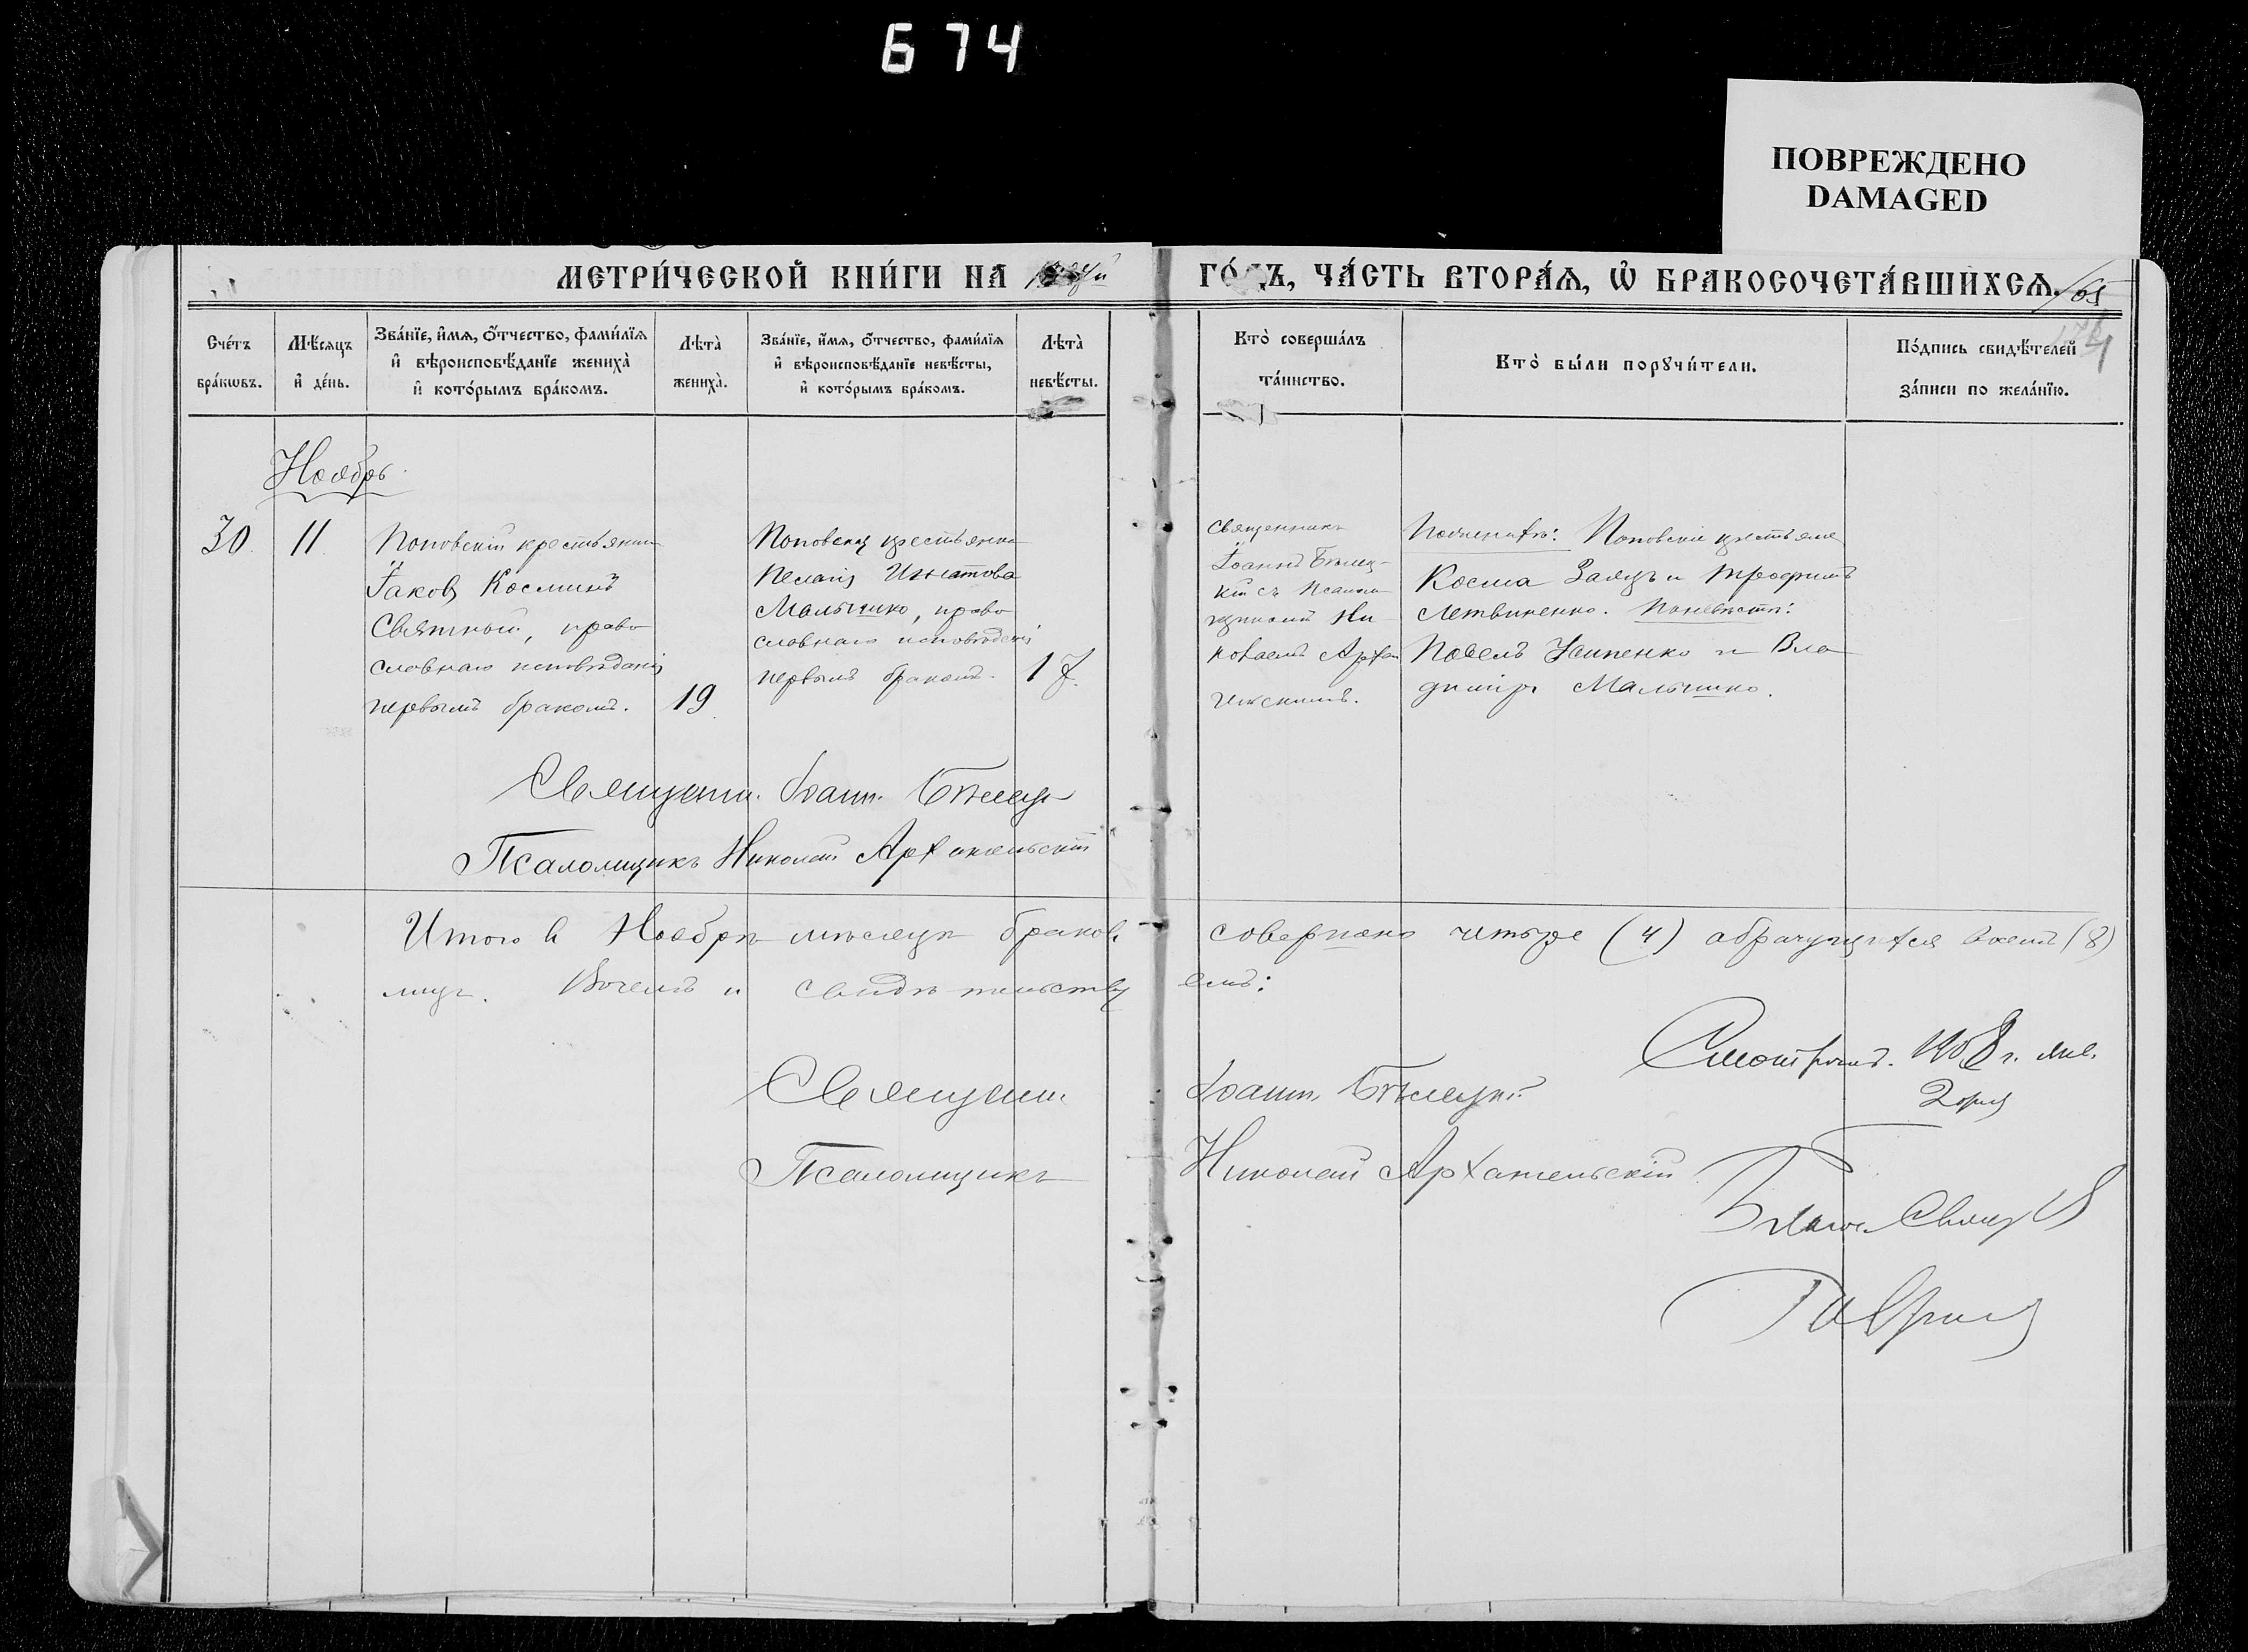 674
ПОВРЕЖДЕНО
DAMAGED
МЕТРИ́ЧЕСКОЙ КНИ́ГИ НА
ГО́ДЪ, ЧА́СТЬ ВТОРА́Я, Ѡ БРАКОСОЧЕТА́ВШИХСЯ.
65
Сче́тъ бра́кѡвъ.
Мѣ́сяцъ и҆ де́нь.
Зва́нїе, и҆́мя, ѻ҆́тчество, фами́лїя
и҆ вѣроисповѣ́данїе жениха̀
и҆ кото́рымъ бра́комъ.
Лѣта̀ жениха̀.
Зва́нїе, и҆́мя, ѻ҆́тчество, фами́лїя
и҆ вѣроисповѣ́данїе невѣ́сты,
и҆ кото́рымъ бра́комъ.
Лѣта̀ невѣ́сты.
Кто̀ соверша́лъ
та́инство.
Кто̀ бы́ли порꙋчи́тели.
По́дпись свидѣ́телей
за́писи по жела́нїю.
Ноябрь
30
11
Поповскій крестьянинъ
Іаковъ Косминъ
Святный, право
славнаго исповѣданія
первымъ бракомъ.
19
Поповская крестьянка
Пелагія Игнатова
Малышко, право
славнаго исповѣданія
первымъ бракомъ.
17
Священникъ
Іоаннъ Бѣлец-
кій съ Псалом
щикомъ Ни
колаемъ Архан
гельскимъ.
По женихѣ: Поповскіе крестьяне
Косма Заяцъ и Трофимъ
Летвиненко. По невѣстѣ:
Павелъ Усипенко и Вла
димиръ Малышко.
Священник Іоанн Бѣлецк
Псаломщикъ Николай Архангельскій
Итого в Ноябрѣ мѣсяцѣ браков совершено четыре (4) обрачущихся восемь (8)
лицъ. Вочемъ и свидѣтельствуемъ:
Священник Іоанн Бѣлецкій
Псаломщикъ Николай Архангельскій
Смотрѣлъ. 1908 г.